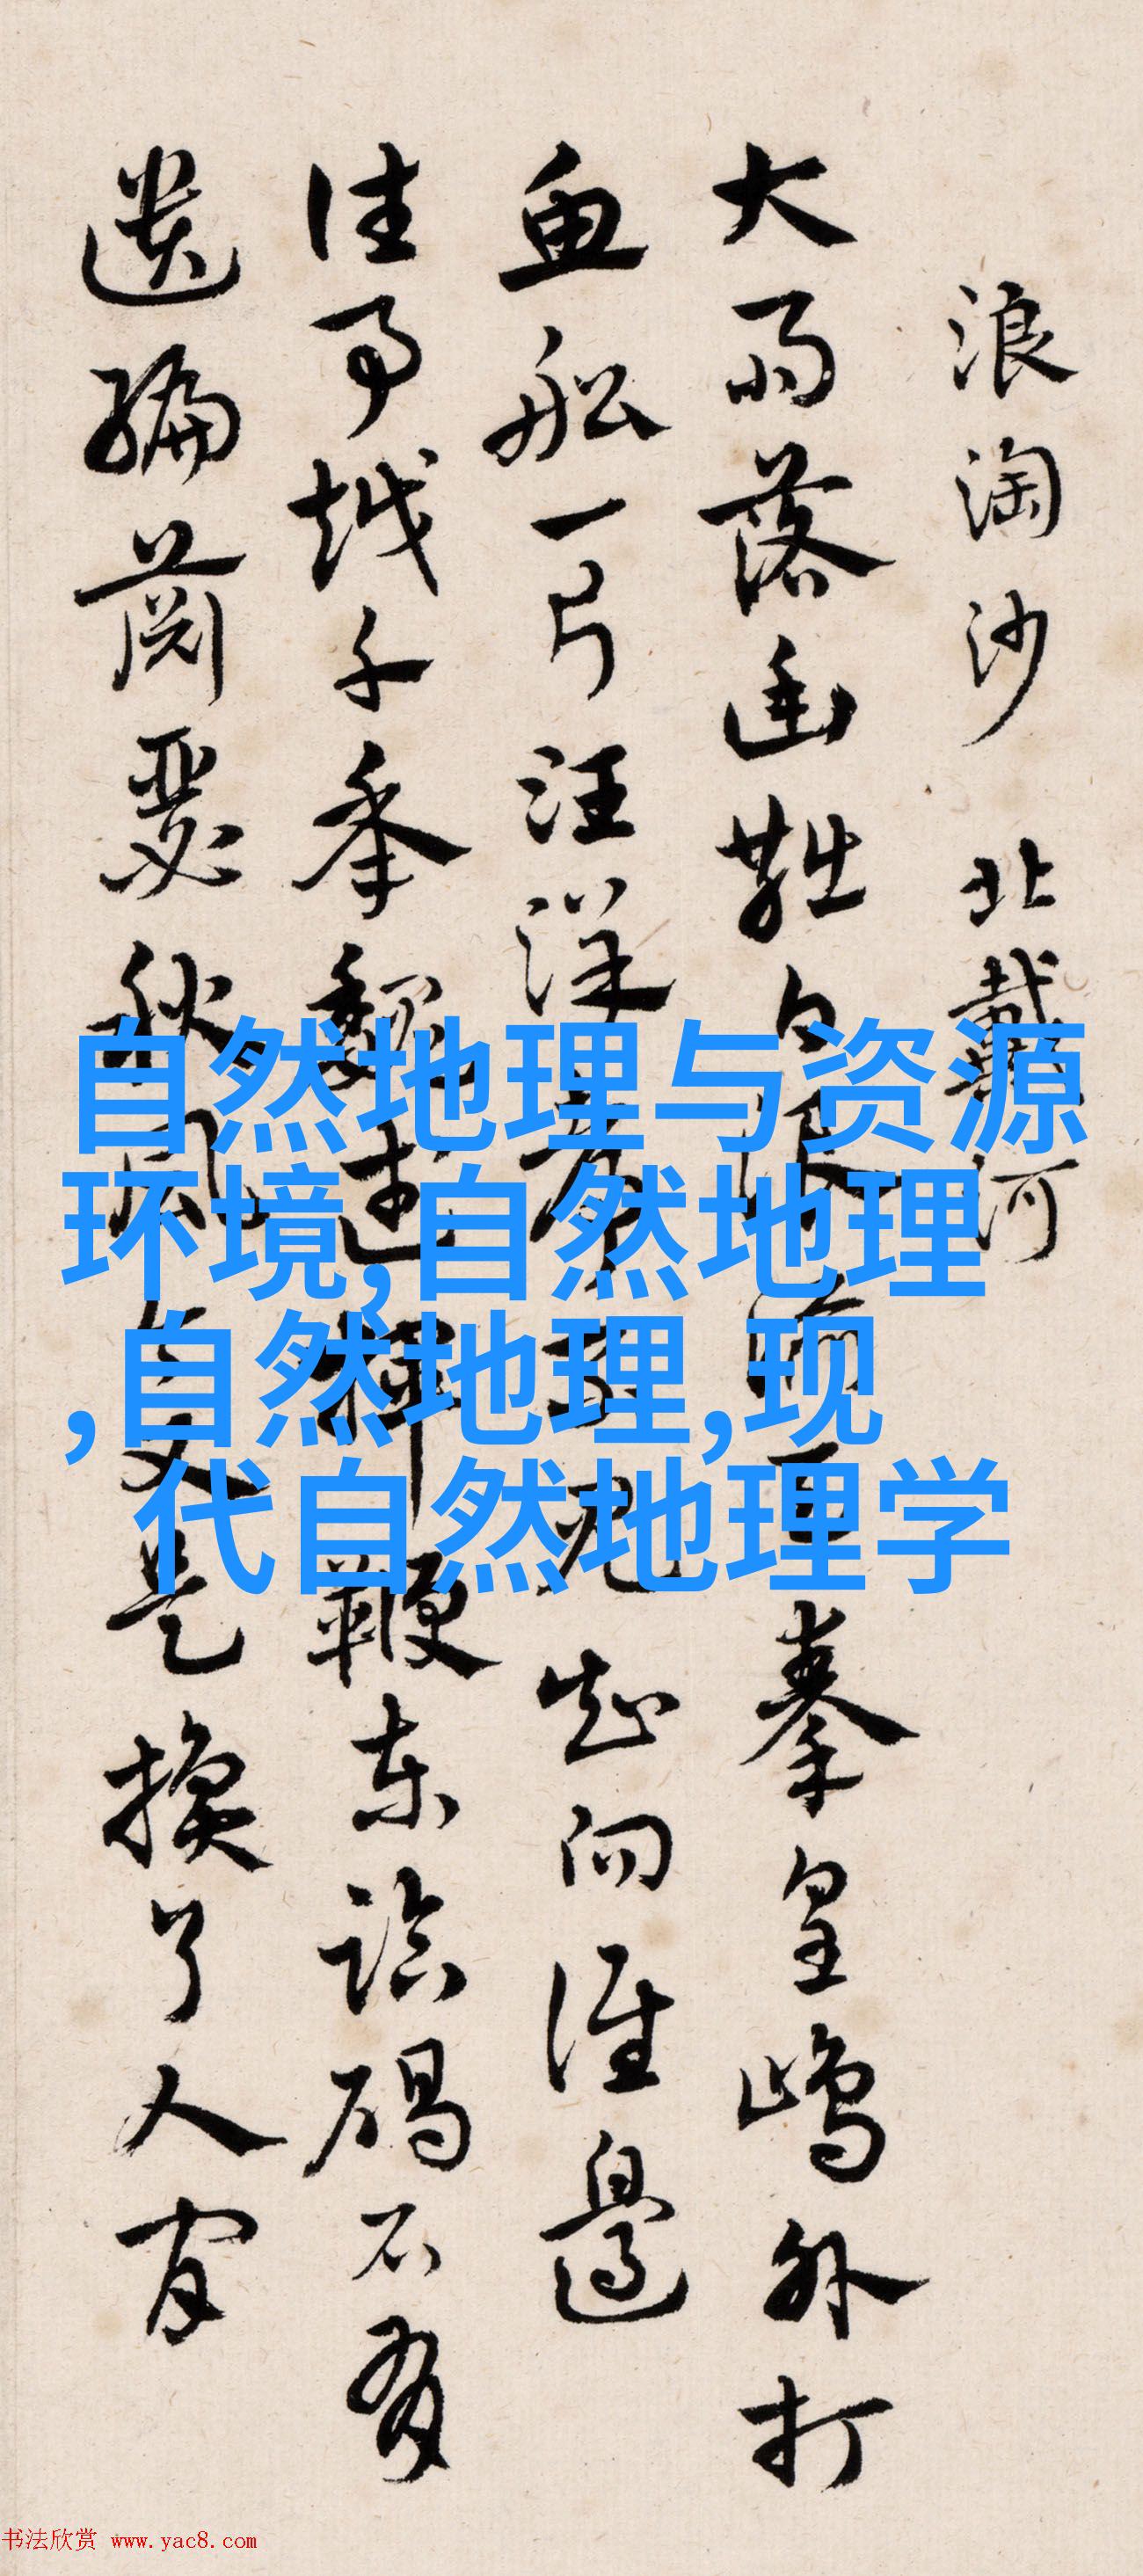 浪淘沙 北戴河
大雨落幽燕白浪滔天秦皇島外打
魚船一片汪洋都不見知向誰邊
往事越千年魏武揮鞭東臨碣石有
遺編蕭瑟秋風今又是換了人間
自然地理与资源
环境,自然地理
,自然地理,现
代自然地理学
书法欣赏 www.yac8.com